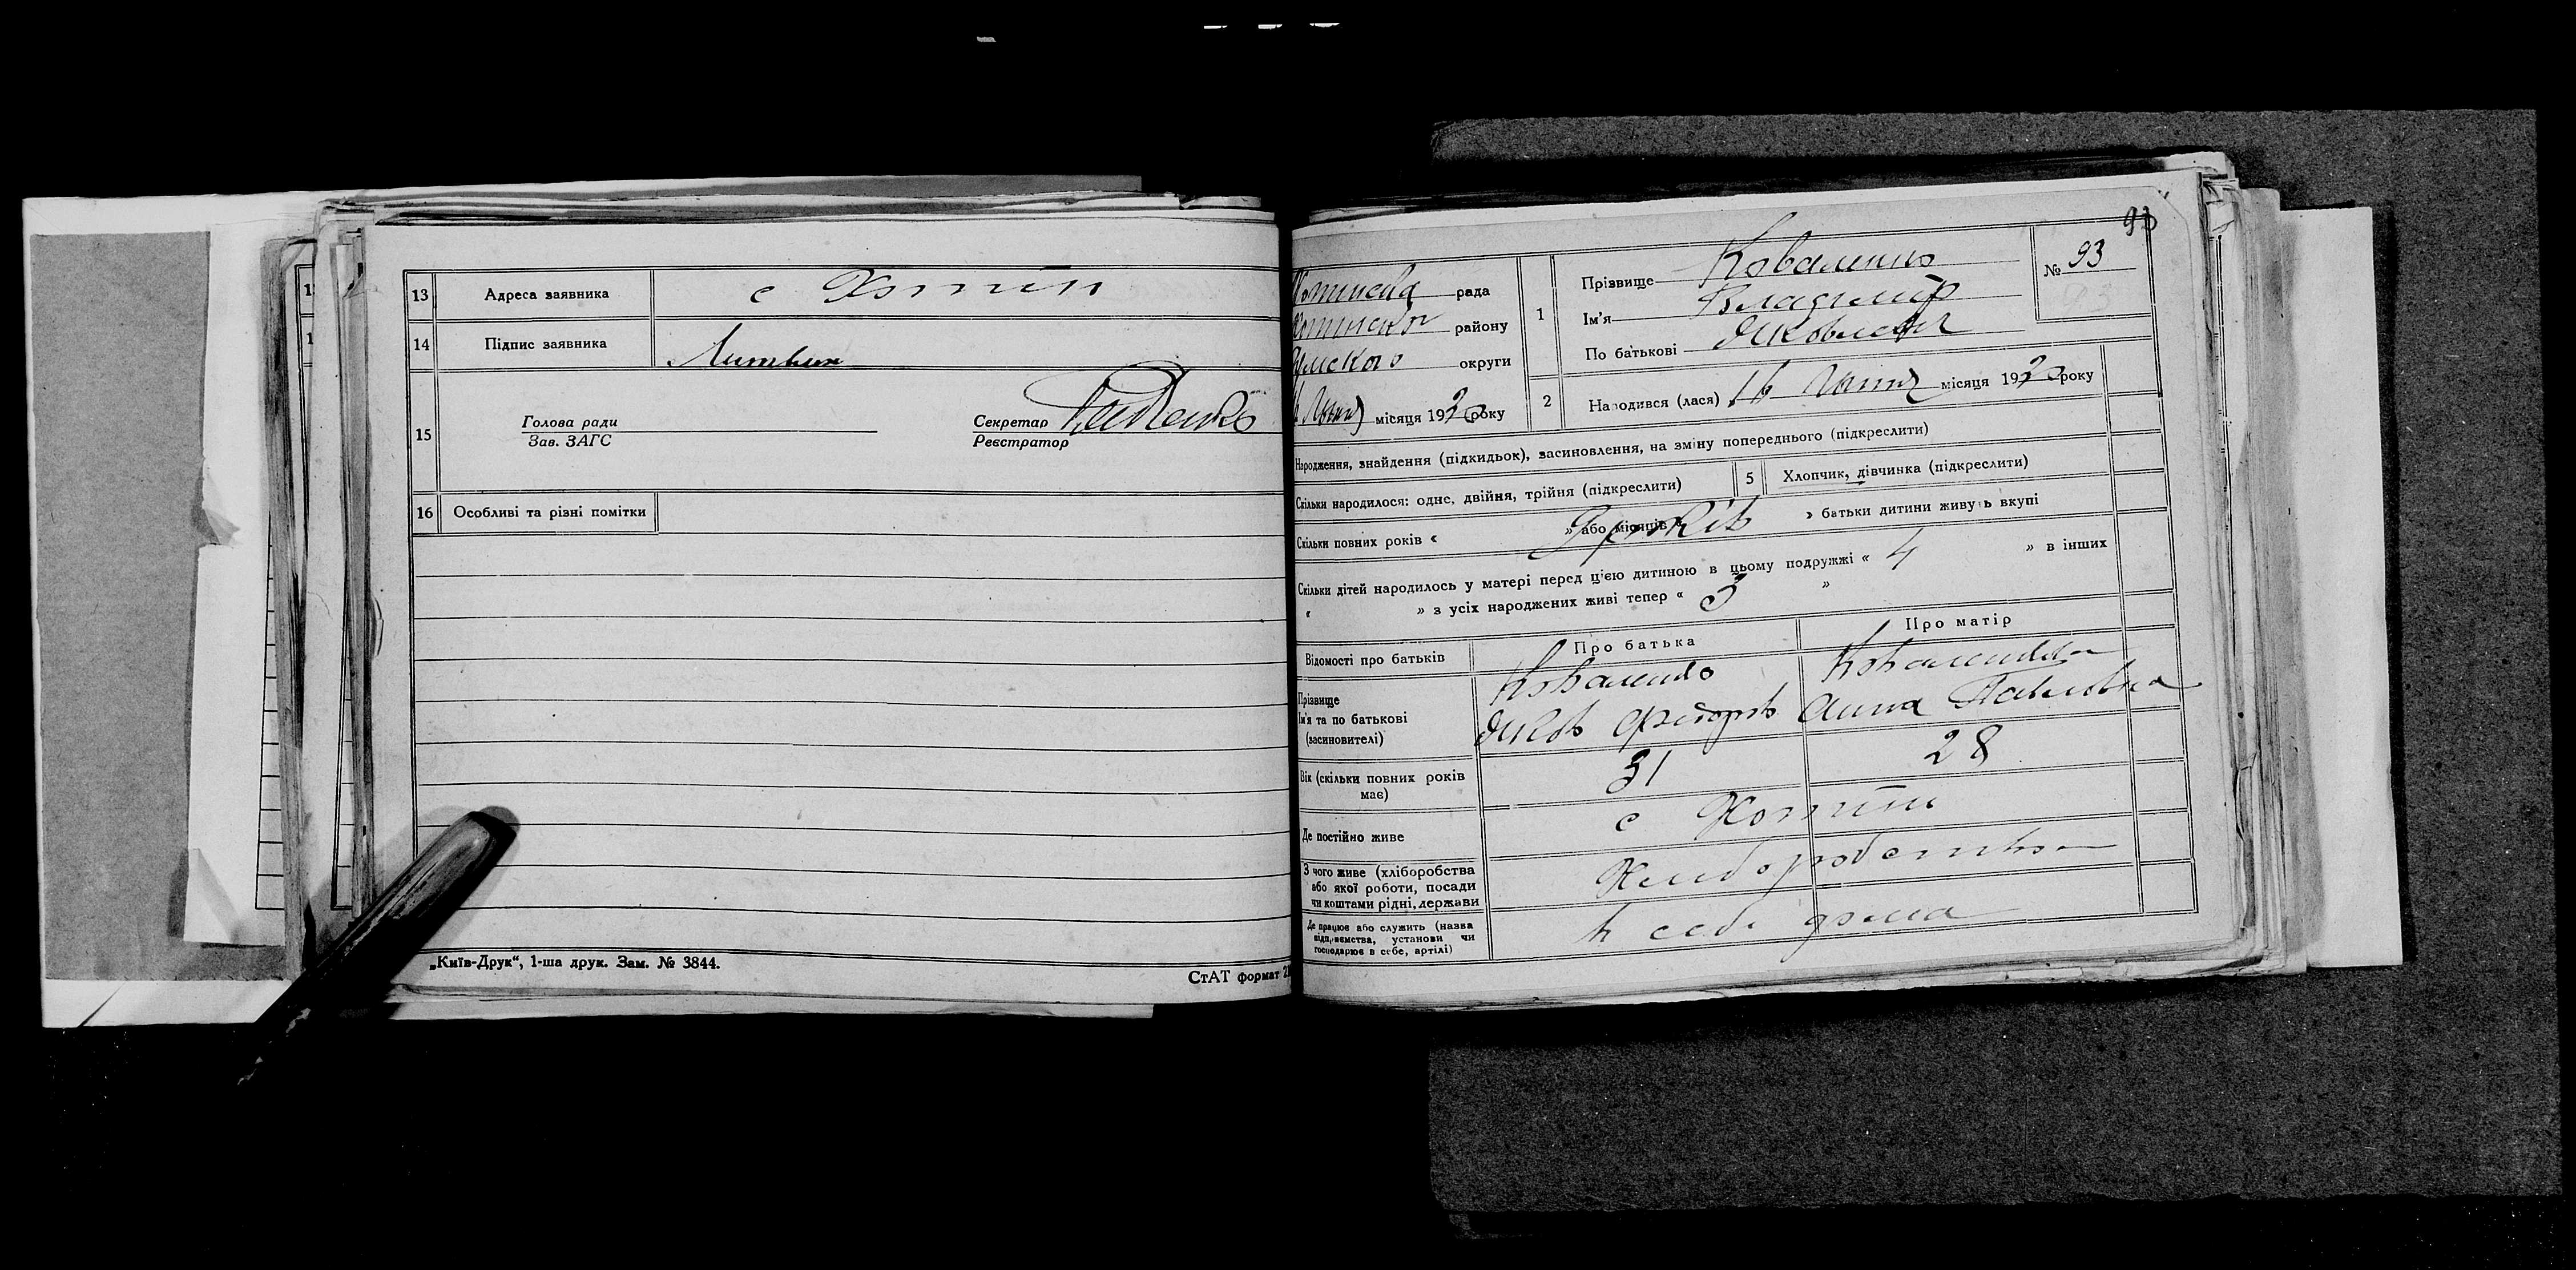 13 Адреса заявника с Хотїн
14 Підпис заявника Литвин
15 Голова ради
Зав. ЗАГС
Секретар
Реєстратор
16 Особливі та різні помітки
„Київ-Друк“, 1-ша друк. Зам. № 3844.
СтАТ формат
93
№ 93
рада
району
округи
місяця 1930 року
1 Прізвище Коваленко
Ім'я Владимїр
По батькові Яковлевич
2 Народився (лася) 16 місяця 1930 року
Народження, знайдення (підкидьок), засиновлення, на зміну попереднього (підкреслити)
Скільки народилося: одне, двійня, трійня (підкреслити)
5 Хлопчик, дівчинка (підкреслити)
Скільки повних років « » або місяців « 9 років » батьки дитини живуть вкупі
Скільки дітей народилось у матері перед цією дитиною в цьому подружжі « 4 » в інших
« » з усіх народжених живі тепер « 3 »
Відомості про батьків
Про батька
Про матір
Прізвище
Ім'я та по батькові
(засиновителі)
Коваленко
Яків
Коваленкова
Анна Павловна
Вік (скільки повних років має)
31
28
Де постійно живе
с Хотїні
З чого живе (хліборобства
або якої роботи, посади
чи коштами рідні, держави
Хлеборобства
Де працює або служить (назва
підприємства, установи чи
господарює в себе, артілі)
в себе дома